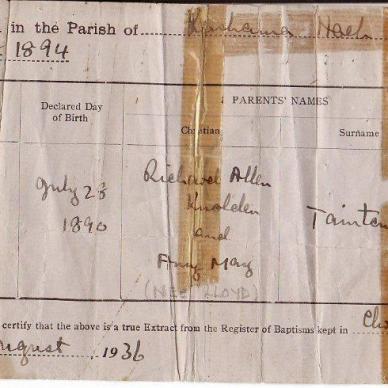 in the Parish of
1894
Declared Day
of Birth
PARENTS' NAMES
Christian
Surname
July 28
1890
Richard Allen
Knolden
and
Amy May
(NEE LLOYD)
certify that the above is a true Extract from the Register of Baptisms kept in
August, 1936